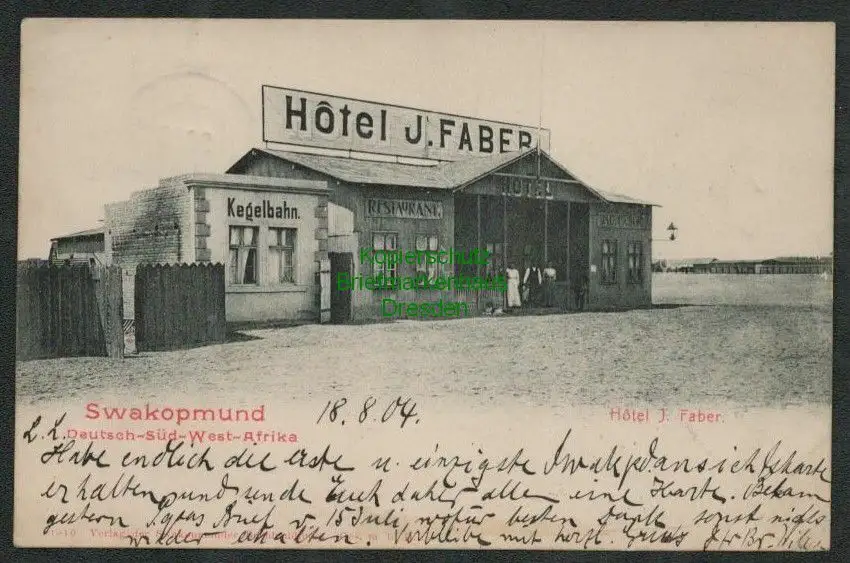 Hôtel J. FABER
HOTEL
Kegelbahn.
RESTAURANT.
Kopierschutz
Briefmarkenhaus
Dresden
Swakopmund
18.8.04.
Hôtel J. Faber.
L. L.
Deutsch-Süd-West-Afrika
Habe endlich die erste u. einzigste
erhalten und sende Euch daher allen eine Karte. Bekam
gestern Papas Brief v. 15 Juli, wofür besten Dank, sonst nichts
wieder erhalten. Verbleibe mit herzl. Gruss